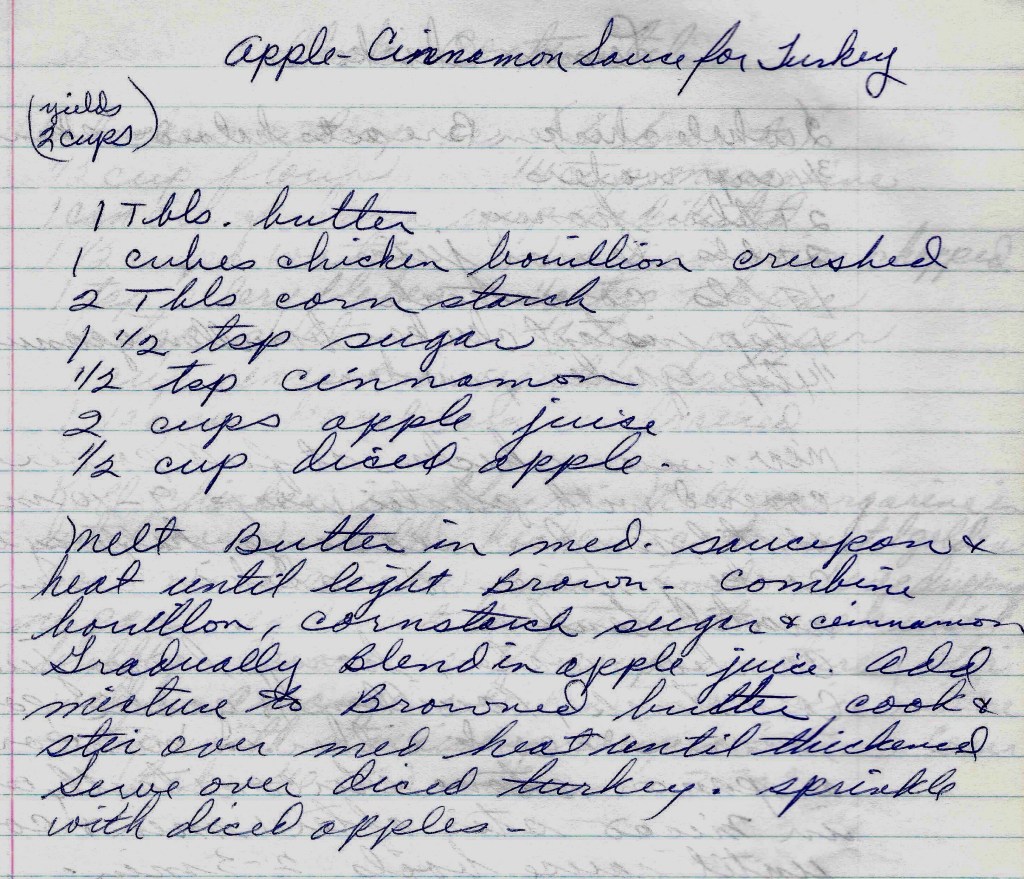 Apple-Cinnamon Sauce for Turkey
(yields
2 cups)
1 Tbls. butter
1 cubes chicken bouillion crushed
2 Tbls corn starch
1 1/2 tsp sugar
1/2 tsp cinnamon
2 cups apple juise
1/2 cup diced apple.
Melt Butter in med. saucepon &
heat until light Brown - Combine
bouillon, cornstarch sugar & cinnamon
Gradually Blend in apple juice. Add
mixture to Browned butter, cook &
stir over med heat until thickened
Serve over diced turkey. sprinkle
with diced apples -